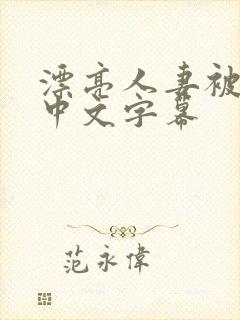 漂亮人妻被
中文字幕
范永偉